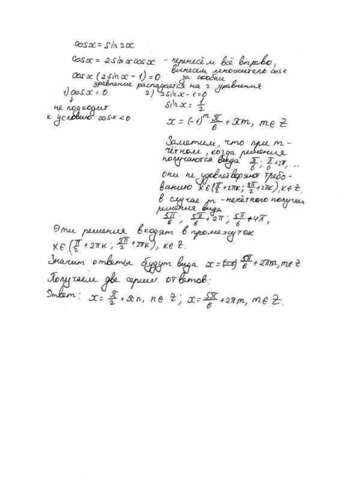 cosx = sin2x
cosx = 2sinx cosx - перенесём всё вправо,
вынесем множитель cosx
за скобки
cosx(2sinx - 1) = 0
уравнение распадается на 2 уравнения
1) cosx = 0 2) 2sinx - 1 = 0
↓ sinx = 1/2
не подходит
к условию cosx < 0 x = (-1)^m π/6 + πm, m ∈ Z
Заметим, что при m-
чётном, когда решения
получаются вида π/6, π/6 + 2π, ...
они не удовлетворяют требо-
ванию x ∈ (π/2 + 2πk; 3π/2 + 2πk), k ∈ Z.
в случае m - нечётного получаем
решения вида
5π/6; 5π/6 + 2π; 5π/6 + 4π,
Эти решения входят в промежуток
x ∈ (π/2 + 2πk, 3π/2 + 2πk), k ∈ Z.
Значит ответы будут вида x = 5π/6 + 2πm, m ∈ Z
Получаем две серии ответов:
Ответ: x = π/2 + πn, n ∈ Z; x = 5π/6 + 2πm, m ∈ Z.